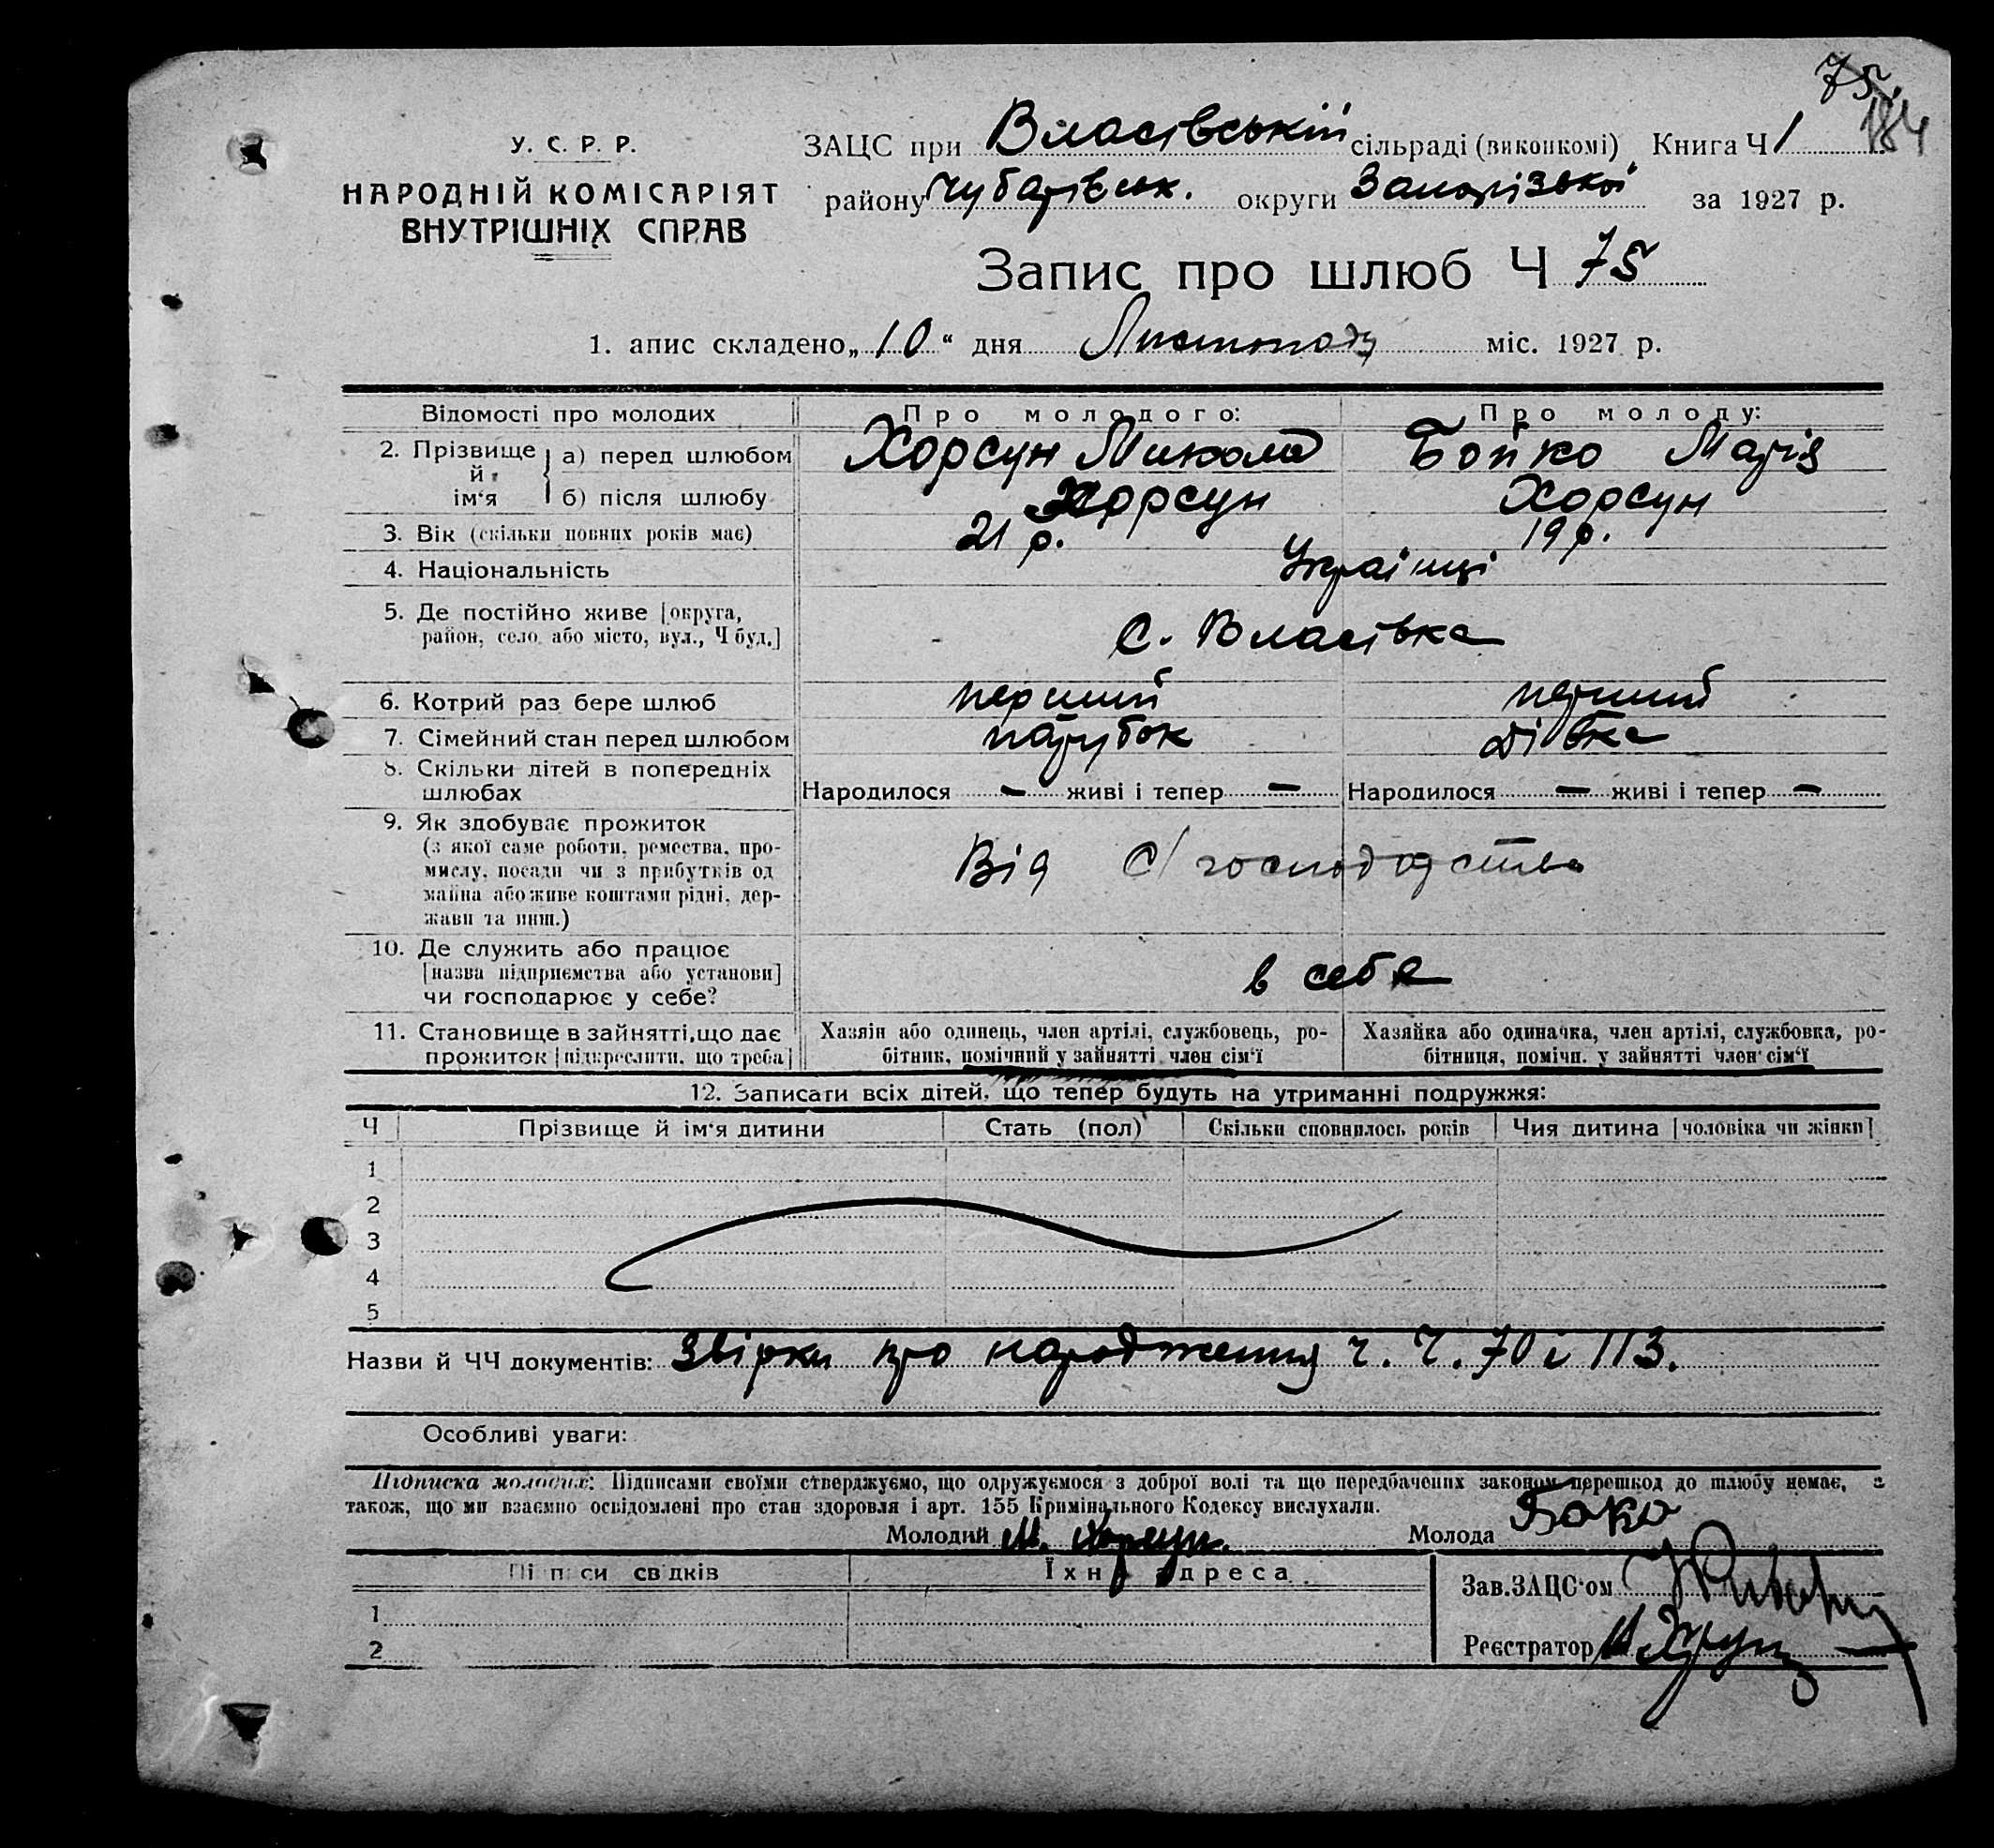 75.
184
У. С. Р. Р.
НАРОДНІЙ КОМІСАРІЯТ
ВНУТРІШНІХ СПРАВ
ЗАЦС при Власівській сільраді (виконкомі) Книга Ч 1
району Чубарівськ. округи Запорізької за 1927 р.
Запис про шлюб Ч 75
1. апис складено „10“ дня Листопаду міс. 1927 р.
Відомості про молодих Про молодого: Про молоду:
2. Прізвище й ім‘я а) перед шлюбом Хорсун Микола Бойко Марія
б) після шлюбу Хорсун Хорсун
3. Вік (скільки повних років має) 21 р. 19 р.
4. Національність Українці
5. Де постійно живе [округа,
район, село або місто, вул., Ч буд.] С. Власівка
6. Котрий раз бере шлюб перший перший
7. Сімейний стан перед шлюбом парубок дівка
8. Скільки дітей в попередніх
шлюбах Народилося — живі і тепер — Народилося — живі і тепер —
9. Як здобуває прожиток
(з якої саме роботи, ремества, про-
мислу, посади чи з прибутків од
майна або живе коштами рідні, дер-
жави та инш.) Від С/господарства
10. Де служить або працює
[назва підприємства або установи]
чи господарює у себе? в себе
11. Становище в зайнятті, що дає
прожиток [підкреслити, що треба]
Хазяїн або одинець, член артілі, службовець, ро-
бітник, помічний у зайнятті член сім‘ї
Хазяйка або одиначка, член артілі, службовка, ро-
бітниця, помічн. у зайнятті член сім‘ї
12. Записати всіх дітей, що тепер будуть на утриманні подружжя:
Ч Прізвище й ім‘я дитини Стать (пол) Скільки сповнилось років Чия дитина [чоловіка чи жінки]
1
2
3
4
5
Назви й ЧЧ документів: Звірки про народження ч. ч. 70 і 113.
Особливі уваги:
Підписка молодих: Підписами своїми стверджуємо, що одружуємося з доброї волі та що передбачених законом перешкод до шлюбу немає, а
також, що ми взаємно освідомлені про стан здоровля і арт. 155 Кримінального Кодексу вислухали.
Молодий М. Хорсун. Молода Боко
Підписи свідків Їхня адреса
1
2
Зав. ЗАЦС‘ом
Реєстратор